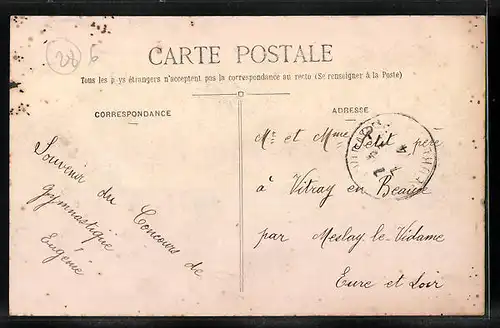 28 6
CARTE POSTALE
Tous les pays étrangers n'acceptent pas la correspondance au recto (Se renseigner à la Poste)
CORRESPONDANCE
Souvenir du Concours de
gymnastique
Eugénie
ADRESSE
Mr et Mme Petit père
à Vitray en Beauce
par Meslay le-Vidame
Eure et Loir